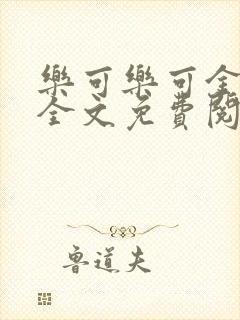 樂可樂可全
全文免費閱
魯道夫